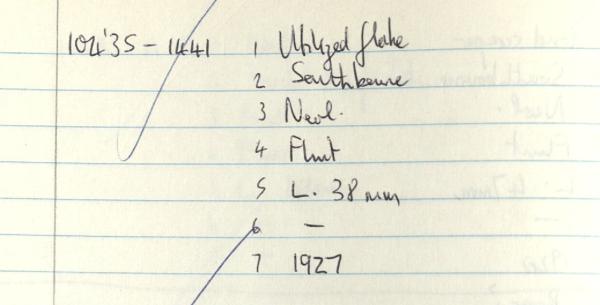 104'35 - 1441 1 Utilized flake
2 Southbourne
3 Neol.
4 Flint
5 L. 38 mm
6 —
7 1927